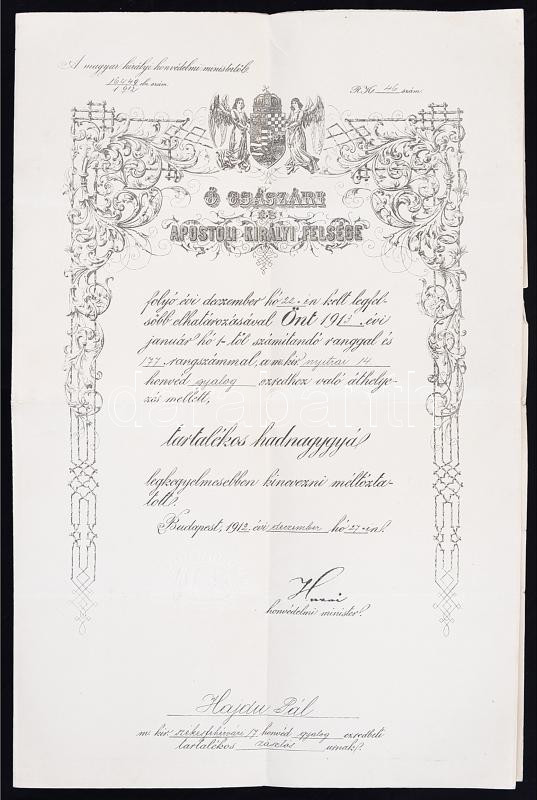 A magyar királyi honvédelmi ministertől.
16449 eln. szám.
1912
R. K. 46 szám.
Ő CSÁSZÁRI
ÉS
APOSTOLI KIRÁLYI FELSÉGE
folyó évi deczember hó 22-én kelt legfel-
sőbb elhatározásával Önt 1913. évi
január hó 1-től számitandó ranggal és
177. rangszámmal, a m. kir. nyitrai 14
honvéd gyalog ezredhez való áthelye-
zés mellett,
tartalékos hadnagygyá
legkegyelmesebben kinevezni méltózta-
tott.
Budapest, 1912. évi deczember hó 27-én.
Hazai
honvédelmi minister.
Hajdu Pál
m. kir. székesfehérvári 17 honvéd gyalog ezredbeli
tartalékos zászlós urnak.
darabanth